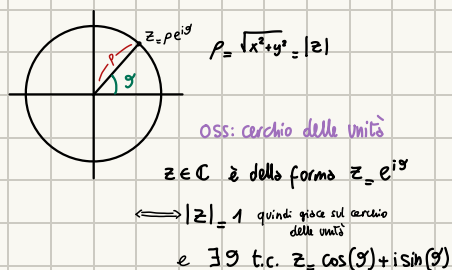 z=ρe^{iϑ}
ρ
ϑ
ρ = √x²+y² = |z|
OSS: cerchio delle unità
z ∈ ℂ è della forma z = e^{iϑ}
⟺ |z| = 1 quindi giace sul cerchio
delle unità
e ∃ ϑ t.c. z = cos(ϑ) + i sin(ϑ)